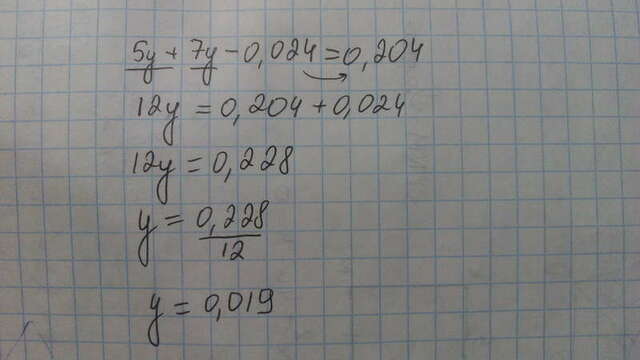 5y + 7y - 0,024 = 0,204
12y = 0,204 + 0,024
12y = 0,228
y = 0,228/12
y = 0,019